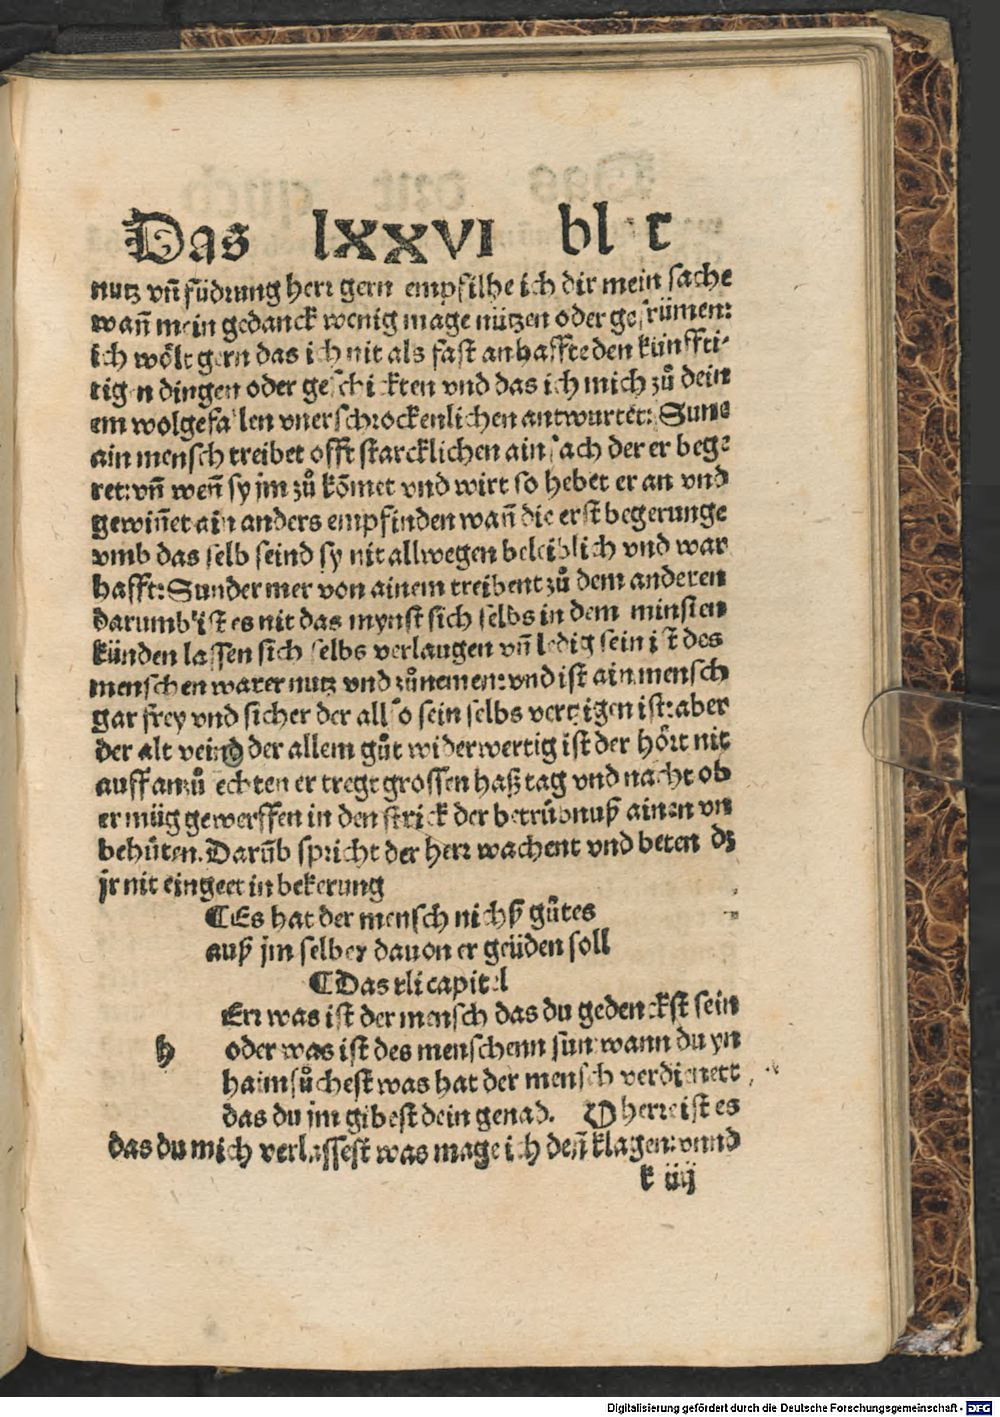 Das lxxvi blat
nutz vñ füdrung herr gern empfilhe ich dir mein sache
wañ mein gedanck wenig mage nützen oder gefrümen:
ich wölt gern das ich nit als fast anhaffte den künffti-
tigen dingen oder geschickten vnd das ich mich zů dein
em wolgefallen vnerschrockenlichen antwurtet: Sune
ain mensch treibet offt starcklichen ain sach der er bege
ret: vñ weñ sy jm zů kõmet vnd wirt so hebet er an vnd
gewiñet ain anders empfinden wañ die erst begerunge
vmb das selb seind sy nit allwegen beleiblich vnd war
hafft: Sunder mer von ainem treibent zů dem anderen
darumb ist es nit das mynst sich selbs in dem minsten
künden lassen sich selbs verlaugen vñ ledig sein ist des
menschen warer nutz vnd zůnemen: vnd ist ain mensch
gar frey vnd sicher der also sein selbs verzigen ist: aber
der alt veind der allem gůt widerwertig ist der hört nit
auff anzů echten er tregt grossen haß tag vnd nacht ob
er müg gewerffen in den strick der betrübnuß ainen vn
behüten. Darũb spricht der herr wachent vnd beten dz
jr nit eingeet in bekerung
¶Es hat der mensch nichß gůtes
auß jm selber dauon er geüden soll
¶Das xli capitel
Err was ist der mensch das du gedenckst sein
h oder was ist des menschenn sun wann du yn
haimsůchest was hat der mensch verdienett
das du jm gibest dein genad. O herre ist es
das du mich verlassest was mage ich deñ klagen: vnnd
k iiij
Digitalisierung gefördert durch die Deutsche Forschungsgemeinschaft - DFG